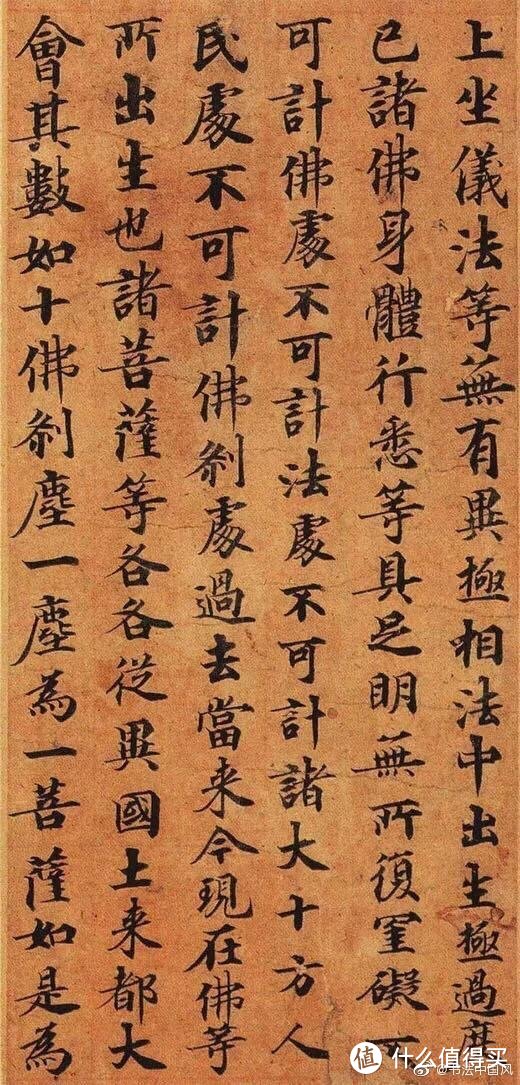 上坐儀法等無有異極相法中出生極過度
已諸佛身體行悉等具足明無所復罣礙不
可計佛處不可計法處不可計諸大十方人
民處不可計佛剎處過去當来今現在佛等
所出生也諸菩薩等各各從異國土来都大
會其數如十佛剎塵一塵為一菩薩如是為
值 什么值得买
@书法中国风